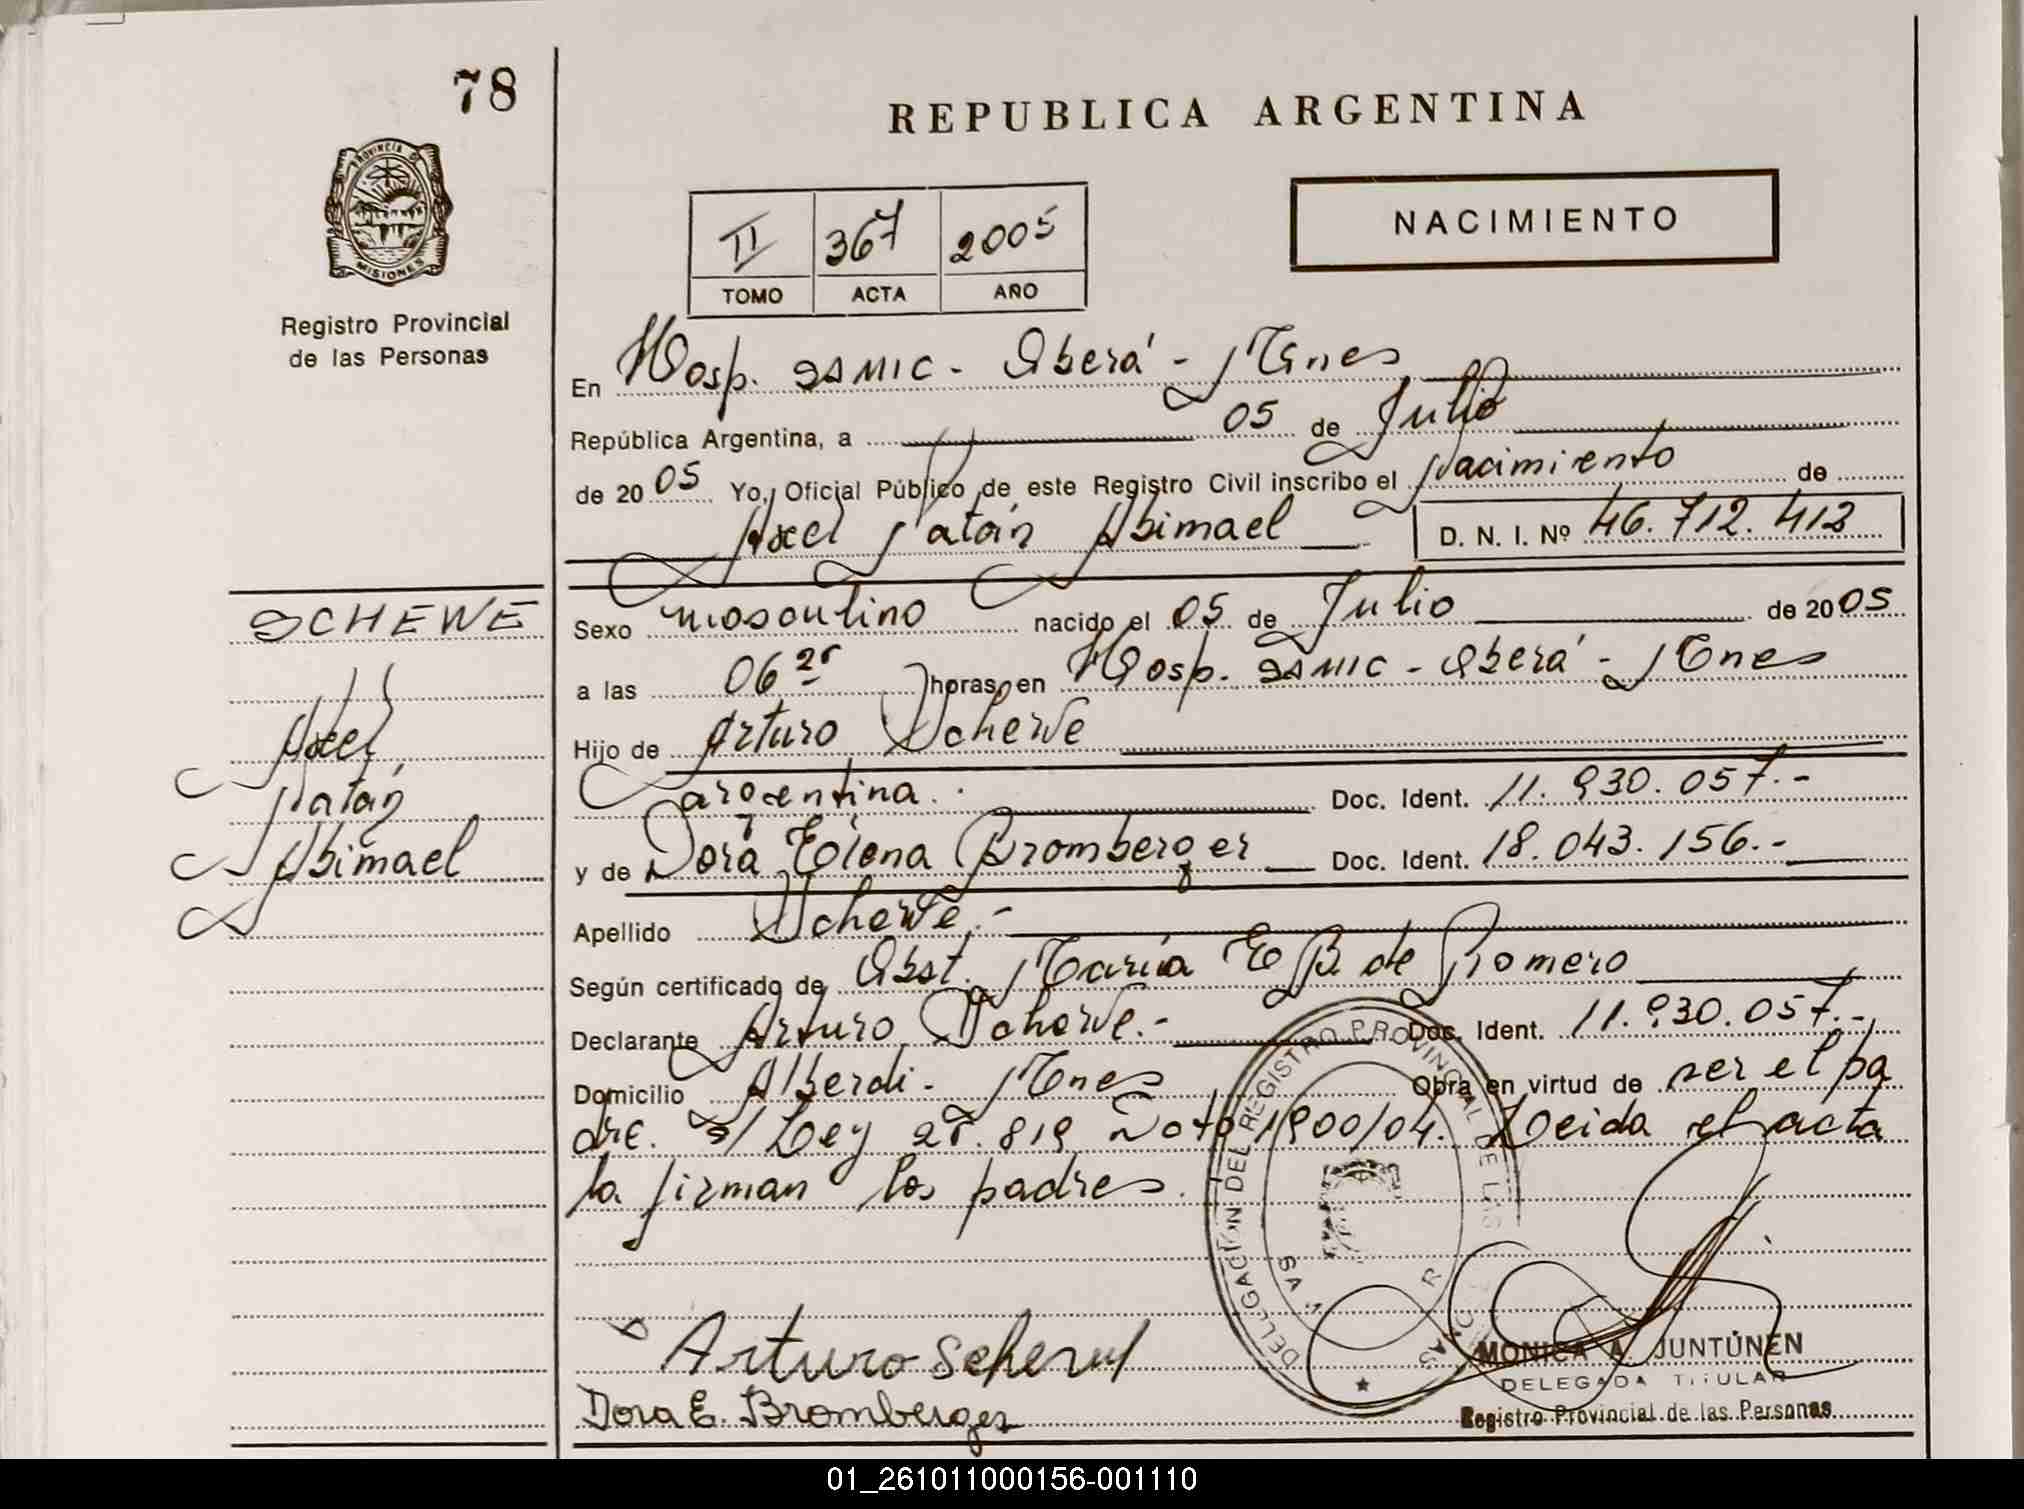 78
REPUBLICA ARGENTINA
PROVINCIA DE
MISIONES
Registro Provincial
de las Personas
II 367 2005
TOMO ACTA AÑO
NACIMIENTO
En Hosp. SAMIC - Oberá - Mnes
República Argentina, a 05 de Julio
de 2005 Yo, Oficial Público de este Registro Civil inscribo el Nacimiento de
Axel Natán Abimael D. N. I. Nº 46.712.413
SCHEWE
Axel
Natán
Abimael
Sexo masculino nacido el 05 de Julio de 2005
a las 06 25 horas, en Hosp. SAMIC - Oberá - Mnes
Hijo de Arturo Schewe
argentina. Doc. Ident. 11.930.057.-
y de Dora Elena Bromberger Doc. Ident. 18.043.156.-
Apellido Schewe.-
Según certificado de Obst. María E B. de Romero
Declarante Arturo Schewe.- Doc. Ident. 11.930.057.-
Domicilio Alberdi - Mnes Obra en virtud de ser el pa
dre. S/ Ley 25.819 1900/04. Leida el acta
la firman los padres.
DELEGACION DEL REGISTRO PROVINCIAL DE LAS
Arturo Schewe
Dora E. Bromberger
MONICA A. JUNTÚNEN
DELEGADA TITULAR
Registro Provincial de las Personas
01_261011000156-001110